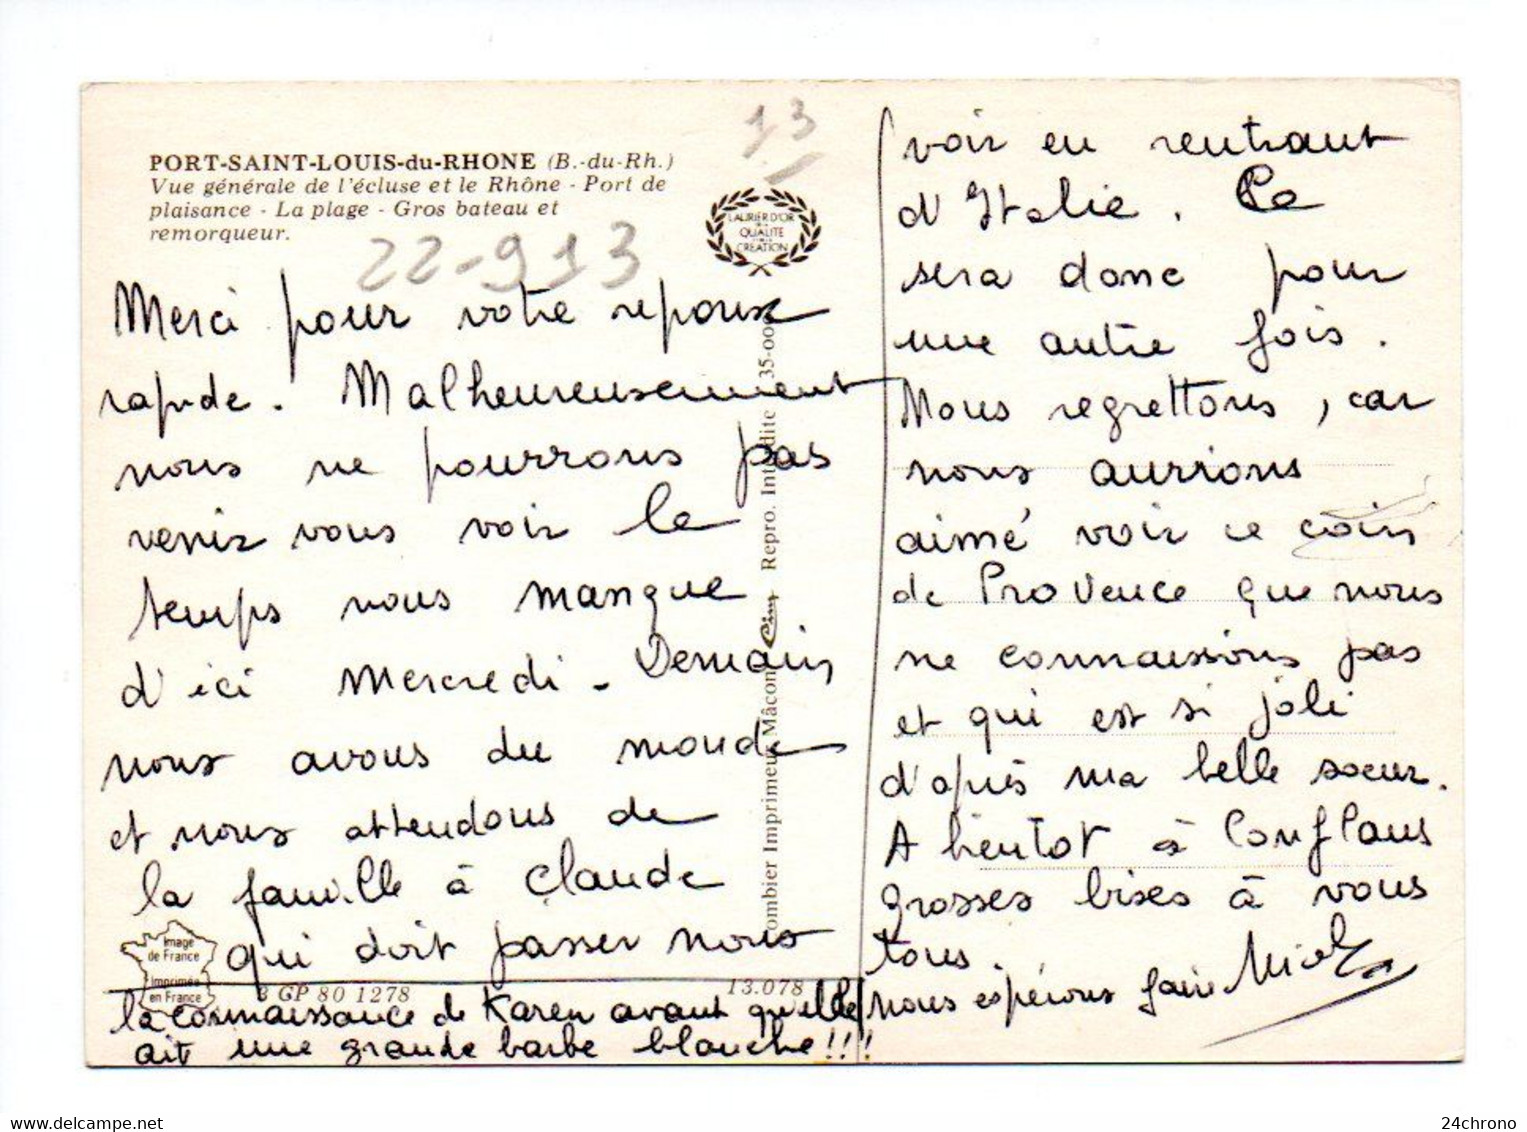 13
PORT-SAINT-LOUIS-du-RHONE (B.-du-Rh.)
Vue générale de l'écluse et le Rhône - Port de
plaisance - La plage - Gros bateau et
remorqueur.
22-913
LAURIER D'OR
DE LA
QUALITE
CREATION
Merci pour votre reponse
rapide. Malheureusement
nous ne pourrons pas
venir vous voir le
temps nous manque
d'ici Mercredi - Demain
nous avons du monde
et nous attendons de
la famille à Claude
qui doit passer nous
voir en rentrant
d'Italie. Ce
sera donc pour
une autre fois.
Nous regrettons, car
nous aurions
aimé voir ce coin
de Provence que nous
ne connaissons pas
et qui est si joli
d'après ma belle soeur.
A bientot à Conflans
Grosses bises à vous
tous.
Nicole
nous espérons faire
la connaissance de Karen avant qu'elle
ait une grande barbe blanche!!!!
Image
de France
Imprimée
en France
3 GP 80 1278
13.078
Combier Imprimeur Mâcon Cim Repro. Interdite 35-00
24chrono
www.delcampe.net